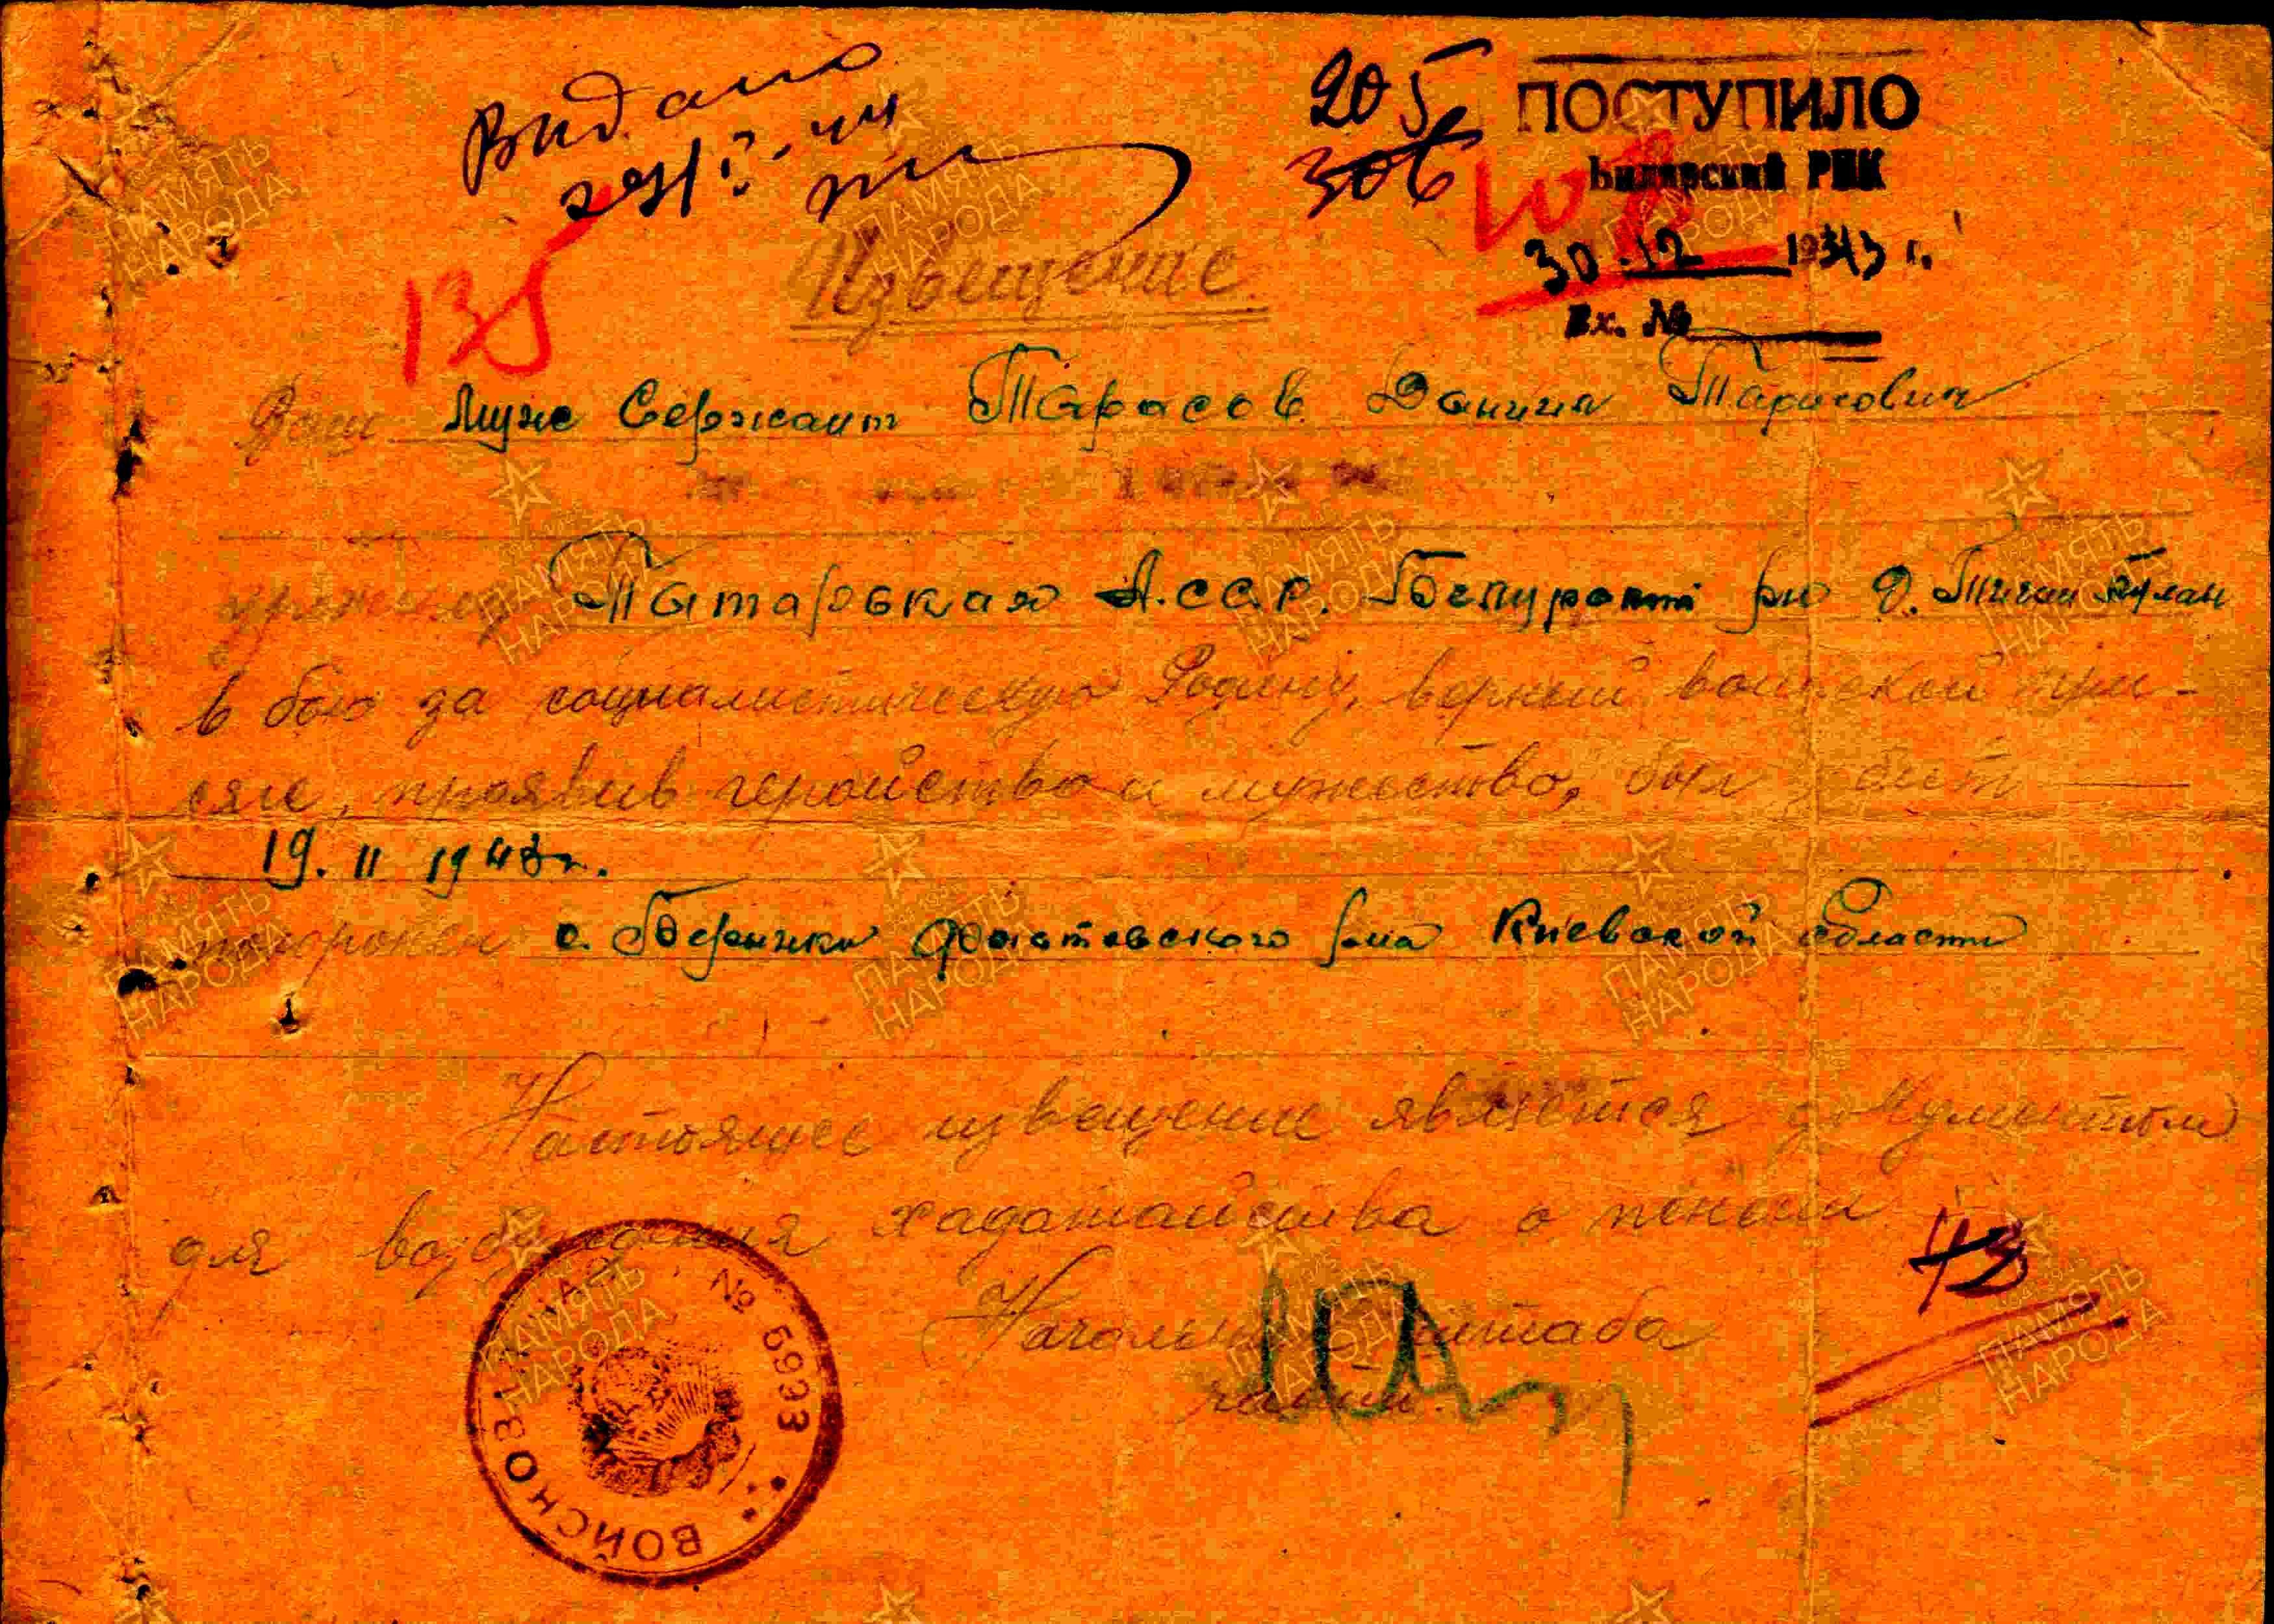 Выдано
205
306
ПОСТУПИЛО
Билярский РВК
108
30.12 1943 г.
Вх. №
135
Извещение
Ваш муж Сержант Тарасов Данил Тарасович
уроженец Татарская А.ССР.
в бою за социалистическую Родину, верный воинской при-
сяге, проявив геройство и мужество, был убит
19. 11 1943 г.
похоронен с. Фастовского р-на Киевской области
Настоящее извещение является документом
для возбуждения хадатайства о пенсии
43
Начальник штаба
части
ВОЙСКОВ № 5933
ПАМЯТЬ НАРОДА